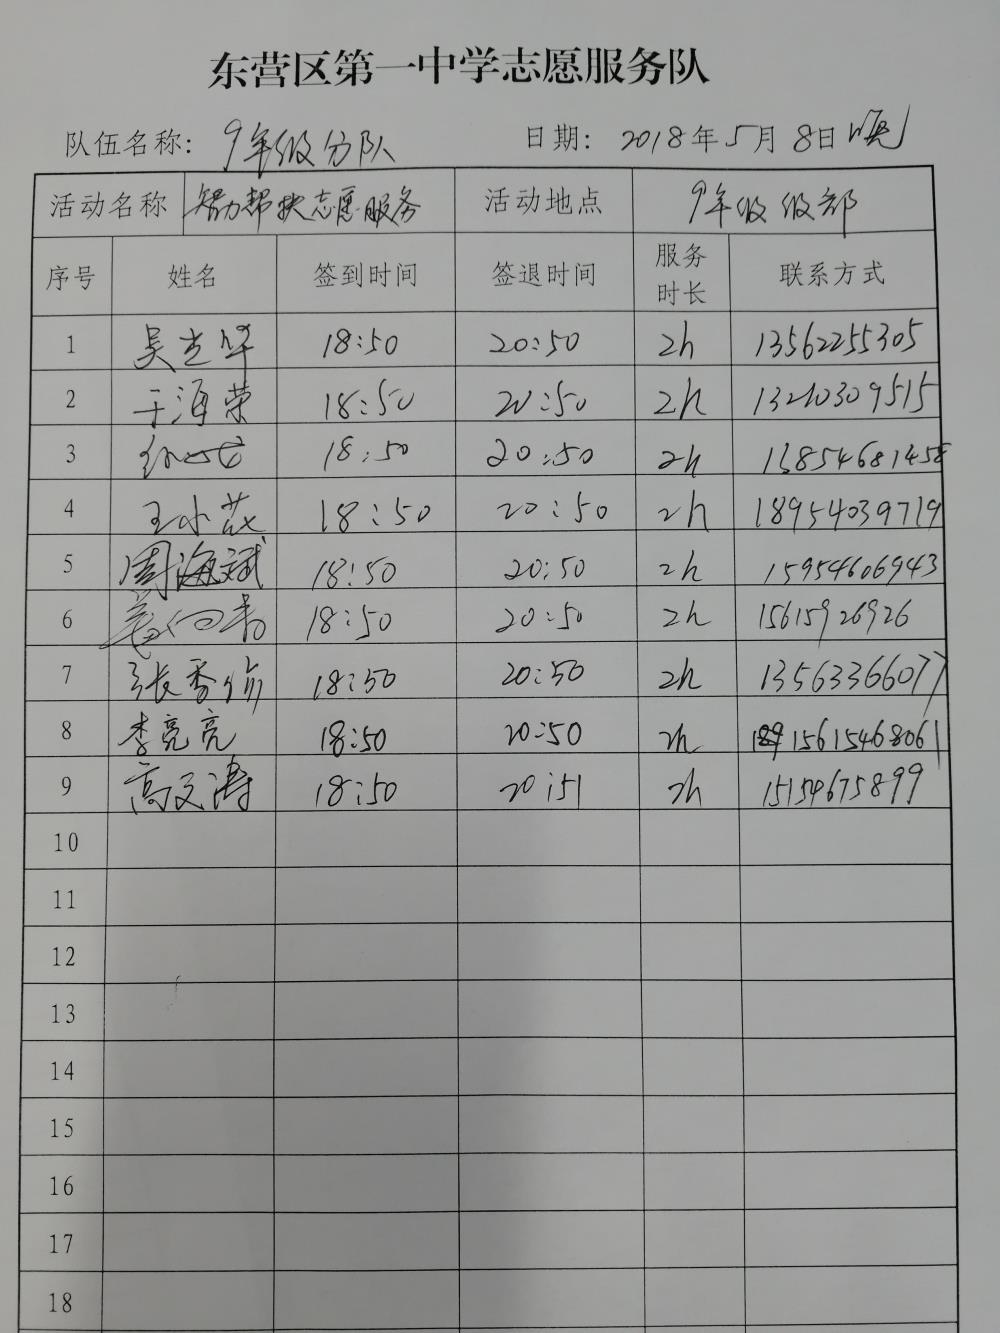 东营区第一中学志愿服务队
队伍名称: 9年级分队 日期: 2018年5月8日 晚
活动名称 智力帮扶志愿服务 活动地点 9年级级部
序号 姓名 签到时间 签退时间 服务时长 联系方式
1 吴 华 18:50 20:50 2h 13562255305
2 于海荣 18:50 20:50 2h 13210309515
3 18:50 20:50 2h 13854681458
4 王小花 18:50 20:50 2h 18954039719
5 周海斌 18:50 20:50 2h 15954606943
6 18:50 20:50 2h 15615926926
7 张秀俞 18:50 20:50 2h 13563366077
8 李亮亮 18:50 20:50 2h 15615468061
9 高文涛 18:50 20:51 2h 15154675899
10
11
12
13
14
15
16
17
18